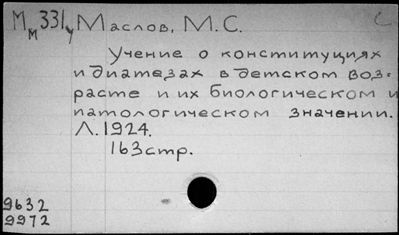 Мм331у Маслов, М.С.
Учение о конституциях
и диатезах в детском воз-
расте и их биологическом и
патологическом значении.
Л. 1924.
163стр.
9632
9972